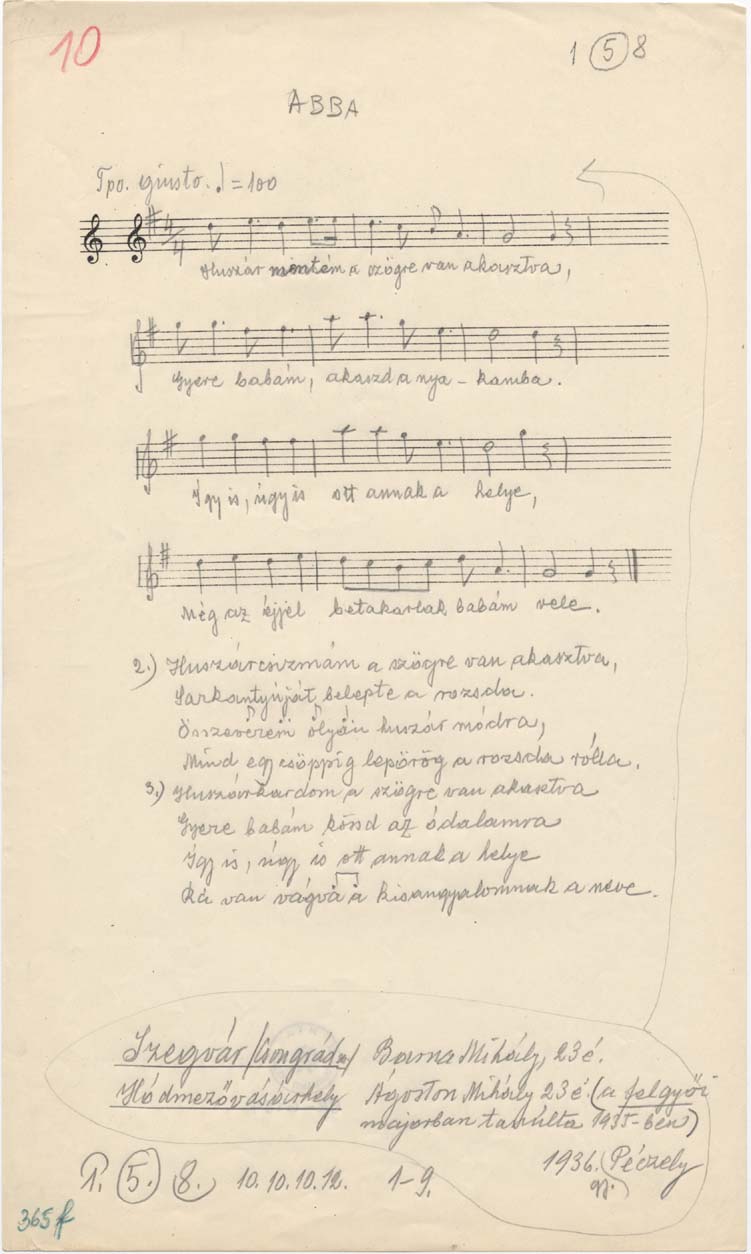 10
1 5 8
ABBA
Tpo. giusto. ♩=100
4/4
Huszár mentém a szögre van akasztva,
Gyere babám, akaszd a nya - kamba.
Így is, úgy is ott annak a helye,
Még az éjjel betakarlak babám vele.
2.) Huszárcsizmám a szögre van akasztva,
Sarkantyúját belepte a rozsda.
Összeverem olyan huszár módra,
Mind egy csöppig lepörög a rozsda rólla.
3.) Huszárkardom a szögre van akasztva
Gyere babám kösd az ódalamra
Így is, úgy is ott annak a helye
Rá van vágva a kisangyalomnak a neve.
Szegvár /Csongrád m/ Barna Mihály, 23 é.
Hódmezővásárhely Ágoston Mihály 23 é. (a felgyői
majorban tanúlta 1935-ben)
1936. Péczely
P. 5. 8. 10.10.10.12. 1-9.
365 f